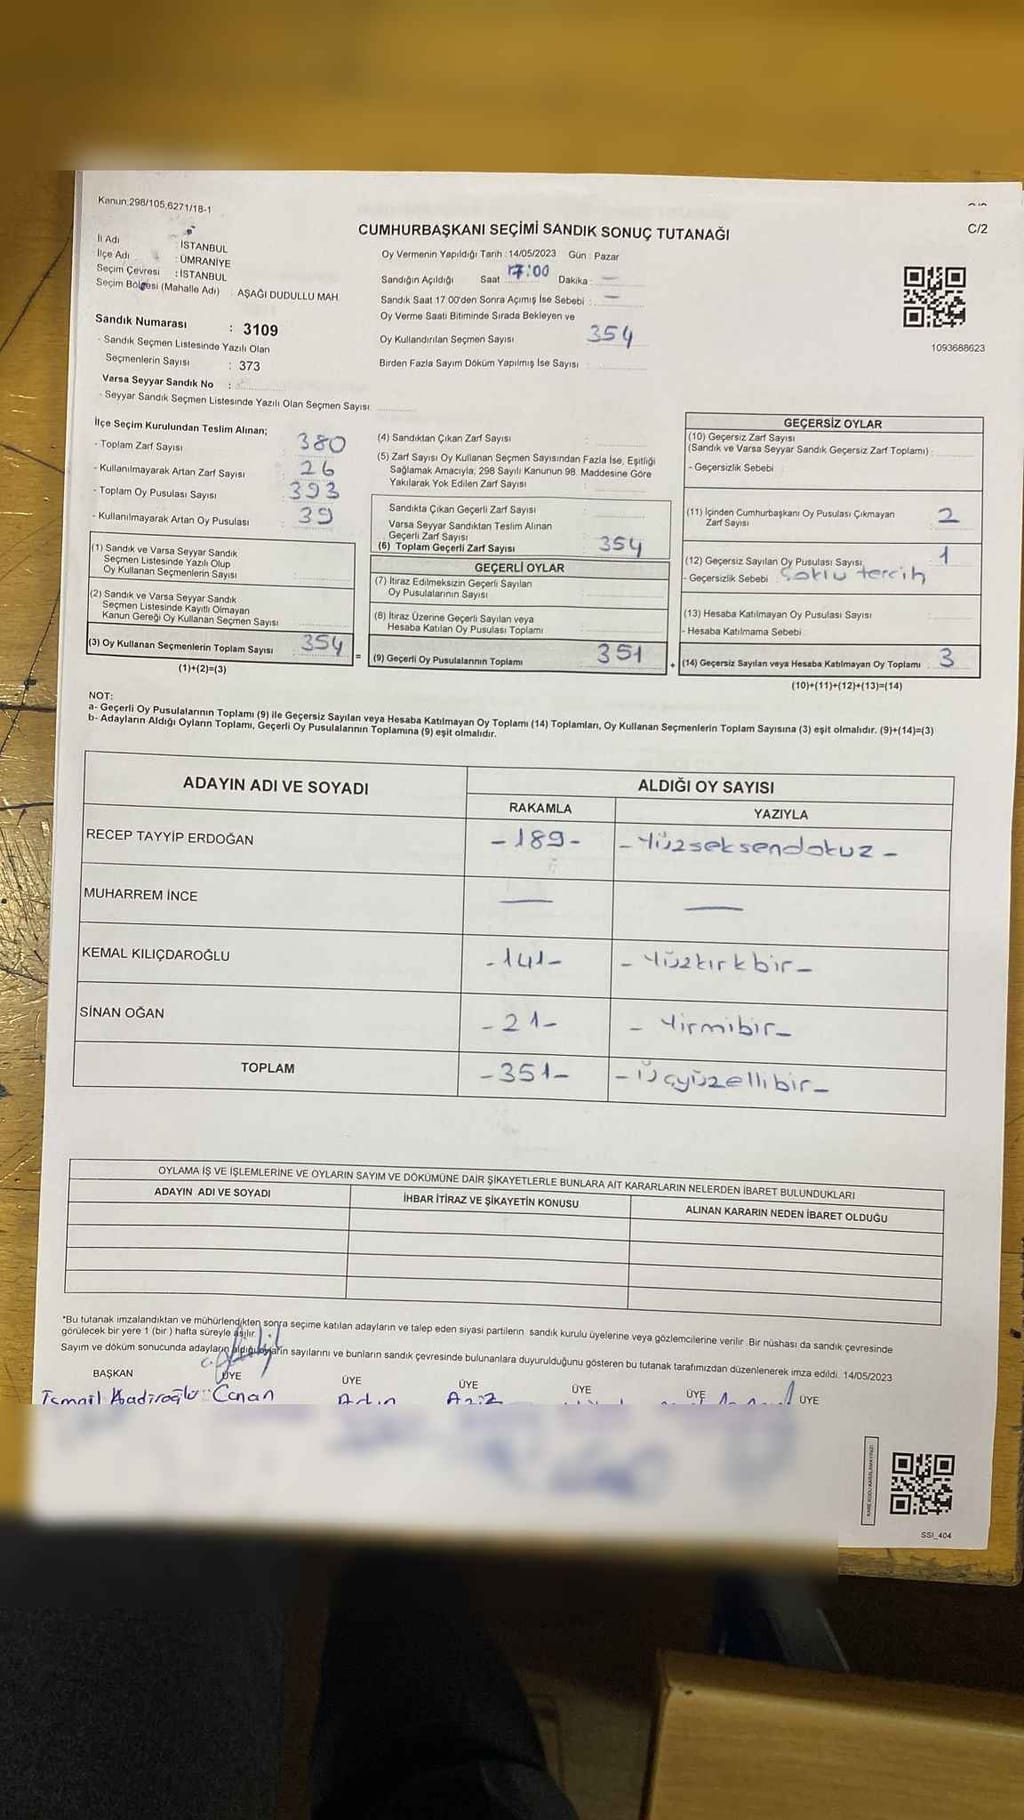 Kanun;298/105,6271/18-1
C/2
CUMHURBAŞKANI SEÇİMİ SANDIK SONUÇ TUTANAĞI
İl Adı : İSTANBUL
İlçe Adı : ÜMRANİYE
Seçim Çevresi : İSTANBUL
Seçim Bölgesi (Mahalle Adı) : AŞAĞI DUDULLU MAH
Sandık Numarası : 3109
- Sandık Seçmen Listesinde Yazılı Olan
Seçmenlerin Sayısı : 373
Varsa Seyyar Sandık No :
- Seyyar Sandık Seçmen Listesinde Yazılı Olan Seçmen Sayısı:
Oy Vermenin Yapıldığı Tarih : 14/05/2023 Gün : Pazar
Sandığın Açıldığı Saat 17:00 Dakika : —
Sandık Saat 17.00'den Sonra Açımış İse Sebebi : —
Oy Verme Saati Bitiminde Sırada Bekleyen ve
Oy Kullandırılan Seçmen Sayısı 354
Birden Fazla Sayım Döküm Yapılmış İse Sayısı :
1093688623
İlçe Seçim Kurulundan Teslim Alınan;
- Toplam Zarf Sayısı 380
- Kullanılmayarak Artan Zarf Sayısı 26
- Toplam Oy Pusulası Sayısı 393
- Kullanılmayarak Artan Oy Pusulası 39
(1) Sandık ve Varsa Seyyar Sandık
Seçmen Listesinde Yazılı Olup
Oy Kullanan Seçmenlerin Sayısı
(2) Sandık ve Varsa Seyyar Sandık
Seçmen Listesinde Kayıtlı Olmayan
Kanun Gereği Oy Kullanan Seçmen Sayısı
(3) Oy Kullanan Seçmenlerin Toplam Sayısı 354
(1)+(2)=(3)
(4) Sandıktan Çıkan Zarf Sayısı
(5) Zarf Sayısı Oy Kullanan Seçmen Sayısından Fazla İse, Eşitliği
Sağlamak Amacıyla, 298 Sayılı Kanunun 98. Maddesine Göre
Yakılarak Yok Edilen Zarf Sayısı
Sandıkta Çıkan Geçerli Zarf Sayısı
Varsa Seyyar Sandıktan Teslim Alınan
Geçerli Zarf Sayısı
(6) Toplam Geçerli Zarf Sayısı 354
GEÇERLİ OYLAR
(7) İtiraz Edilmeksizin Geçerli Sayılan
Oy Pusulalarının Sayısı
(8) İtiraz Üzerine Geçerli Sayılan veya
Hesaba Katılan Oy Pusulası Toplamı
= (9) Geçerli Oy Pusulalarının Toplamı 351
GEÇERSİZ OYLAR
(10) Geçersiz Zarf Sayısı
(Sandık ve Varsa Seyyar Sandık Geçersiz Zarf Toplamı) :
- Geçersizlik Sebebi
(11) İçinden Cumhurbaşkanı Oy Pusulası Çıkmayan
Zarf Sayısı 2
(12) Geçersiz Sayılan Oy Pusulası Sayısı 1
- Geçersizlik Sebebi Çoklu tercih
(13) Hesaba Katılmayan Oy Pusulası Sayısı
- Hesaba Katılmama Sebebi
+ (14) Geçersiz Sayılan veya Hesaba Katılmayan Oy Toplamı 3
(10)+(11)+(12)+(13)=(14)
NOT:
a- Geçerli Oy Pusulalarının Toplamı (9) ile Geçersiz Sayılan veya Hesaba Katılmayan Oy Toplamı (14) Toplamları, Oy Kullanan Seçmenlerin Toplam Sayısına (3) eşit olmalıdır. (9)+(14)=(3)
b- Adayların Aldığı Oyların Toplamı, Geçerli Oy Pusulalarının Toplamına (9) eşit olmalıdır.
ADAYIN ADI VE SOYADI ALDIĞI OY SAYISI
RAKAMLA YAZIYLA
RECEP TAYYİP ERDOĞAN -189- -Yüzseksendokuz-
MUHARREM İNCE — —
KEMAL KILIÇDAROĞLU -141- -Yüzkırkbir-
SİNAN OĞAN -21- -Yirmibir-
TOPLAM -351- -Üçyüzellibir-
OYLAMA İŞ VE İŞLEMLERİNE VE OYLARIN SAYIM VE DÖKÜMÜNE DAİR ŞİKAYETLERLE BUNLARA AİT KARARLARIN NELERDEN İBARET BULUNDUKLARI
ADAYIN ADI VE SOYADI İHBAR İTİRAZ VE ŞİKAYETİN KONUSU ALINAN KARARIN NEDEN İBARET OLDUĞU
*Bu tutanak imzalandıktan ve mühürlendikten sonra seçime katılan adayların ve talep eden siyasi partilerin sandık kurulu üyelerine veya gözlemcilerine verilir. Bir nüshası da sandık çevresinde
görülecek bir yere 1 (bir ) hafta süreyle asılır.
Sayım ve döküm sonucunda adayların aldığı oyların sayılarını ve bunların sandık çevresinde bulunanlara duyurulduğunu gösteren bu tutanak tarafımızdan düzenlenerek imza edildi. 14/05/2023
BAŞKAN ÜYE ÜYE ÜYE ÜYE ÜYE ÜYE
İsmail Kadiroğlu Canan Aziz
SSI_404